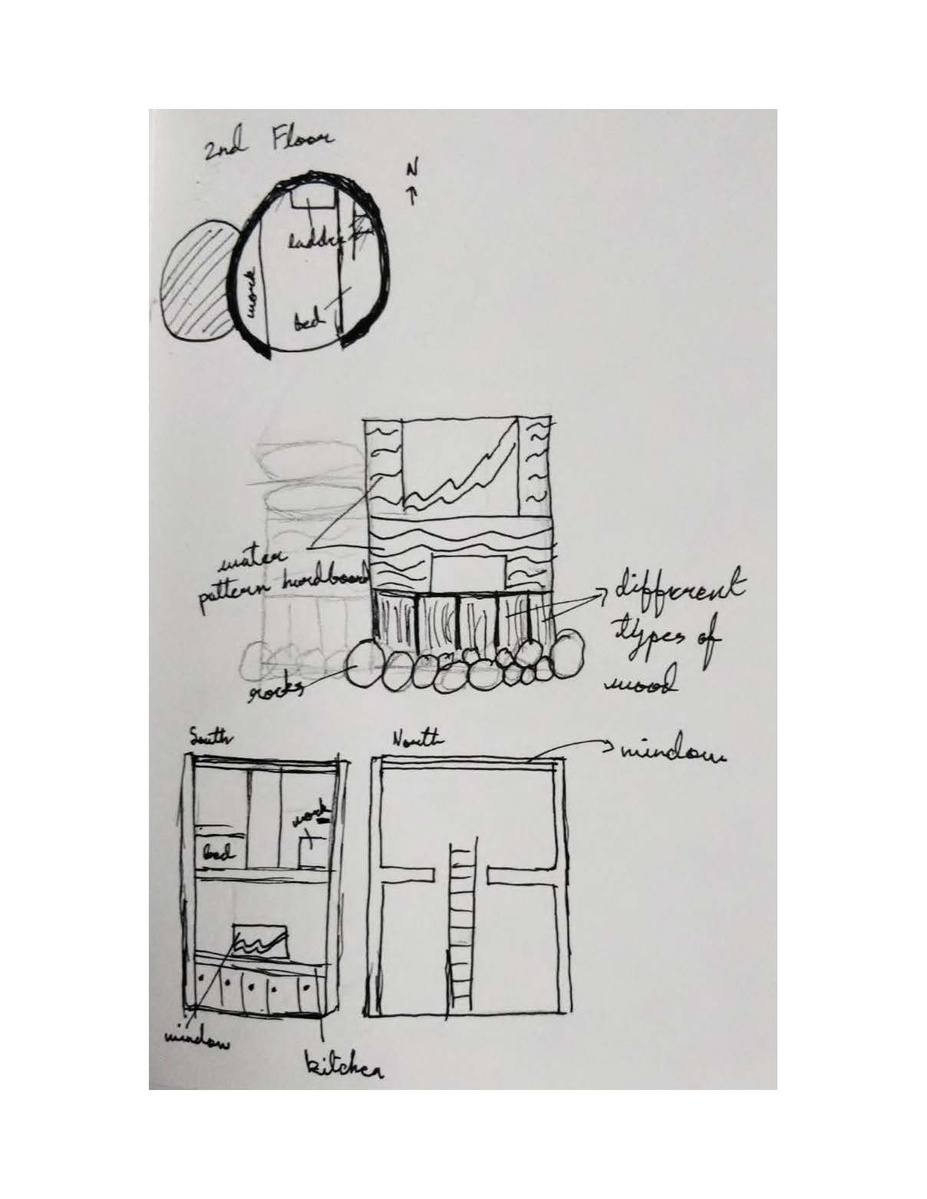 2nd Floor
N
ladder
work
bed
water
pattern hardboard
different
types of
wood
rocks
South
North
window
work
bed
window
kitchen